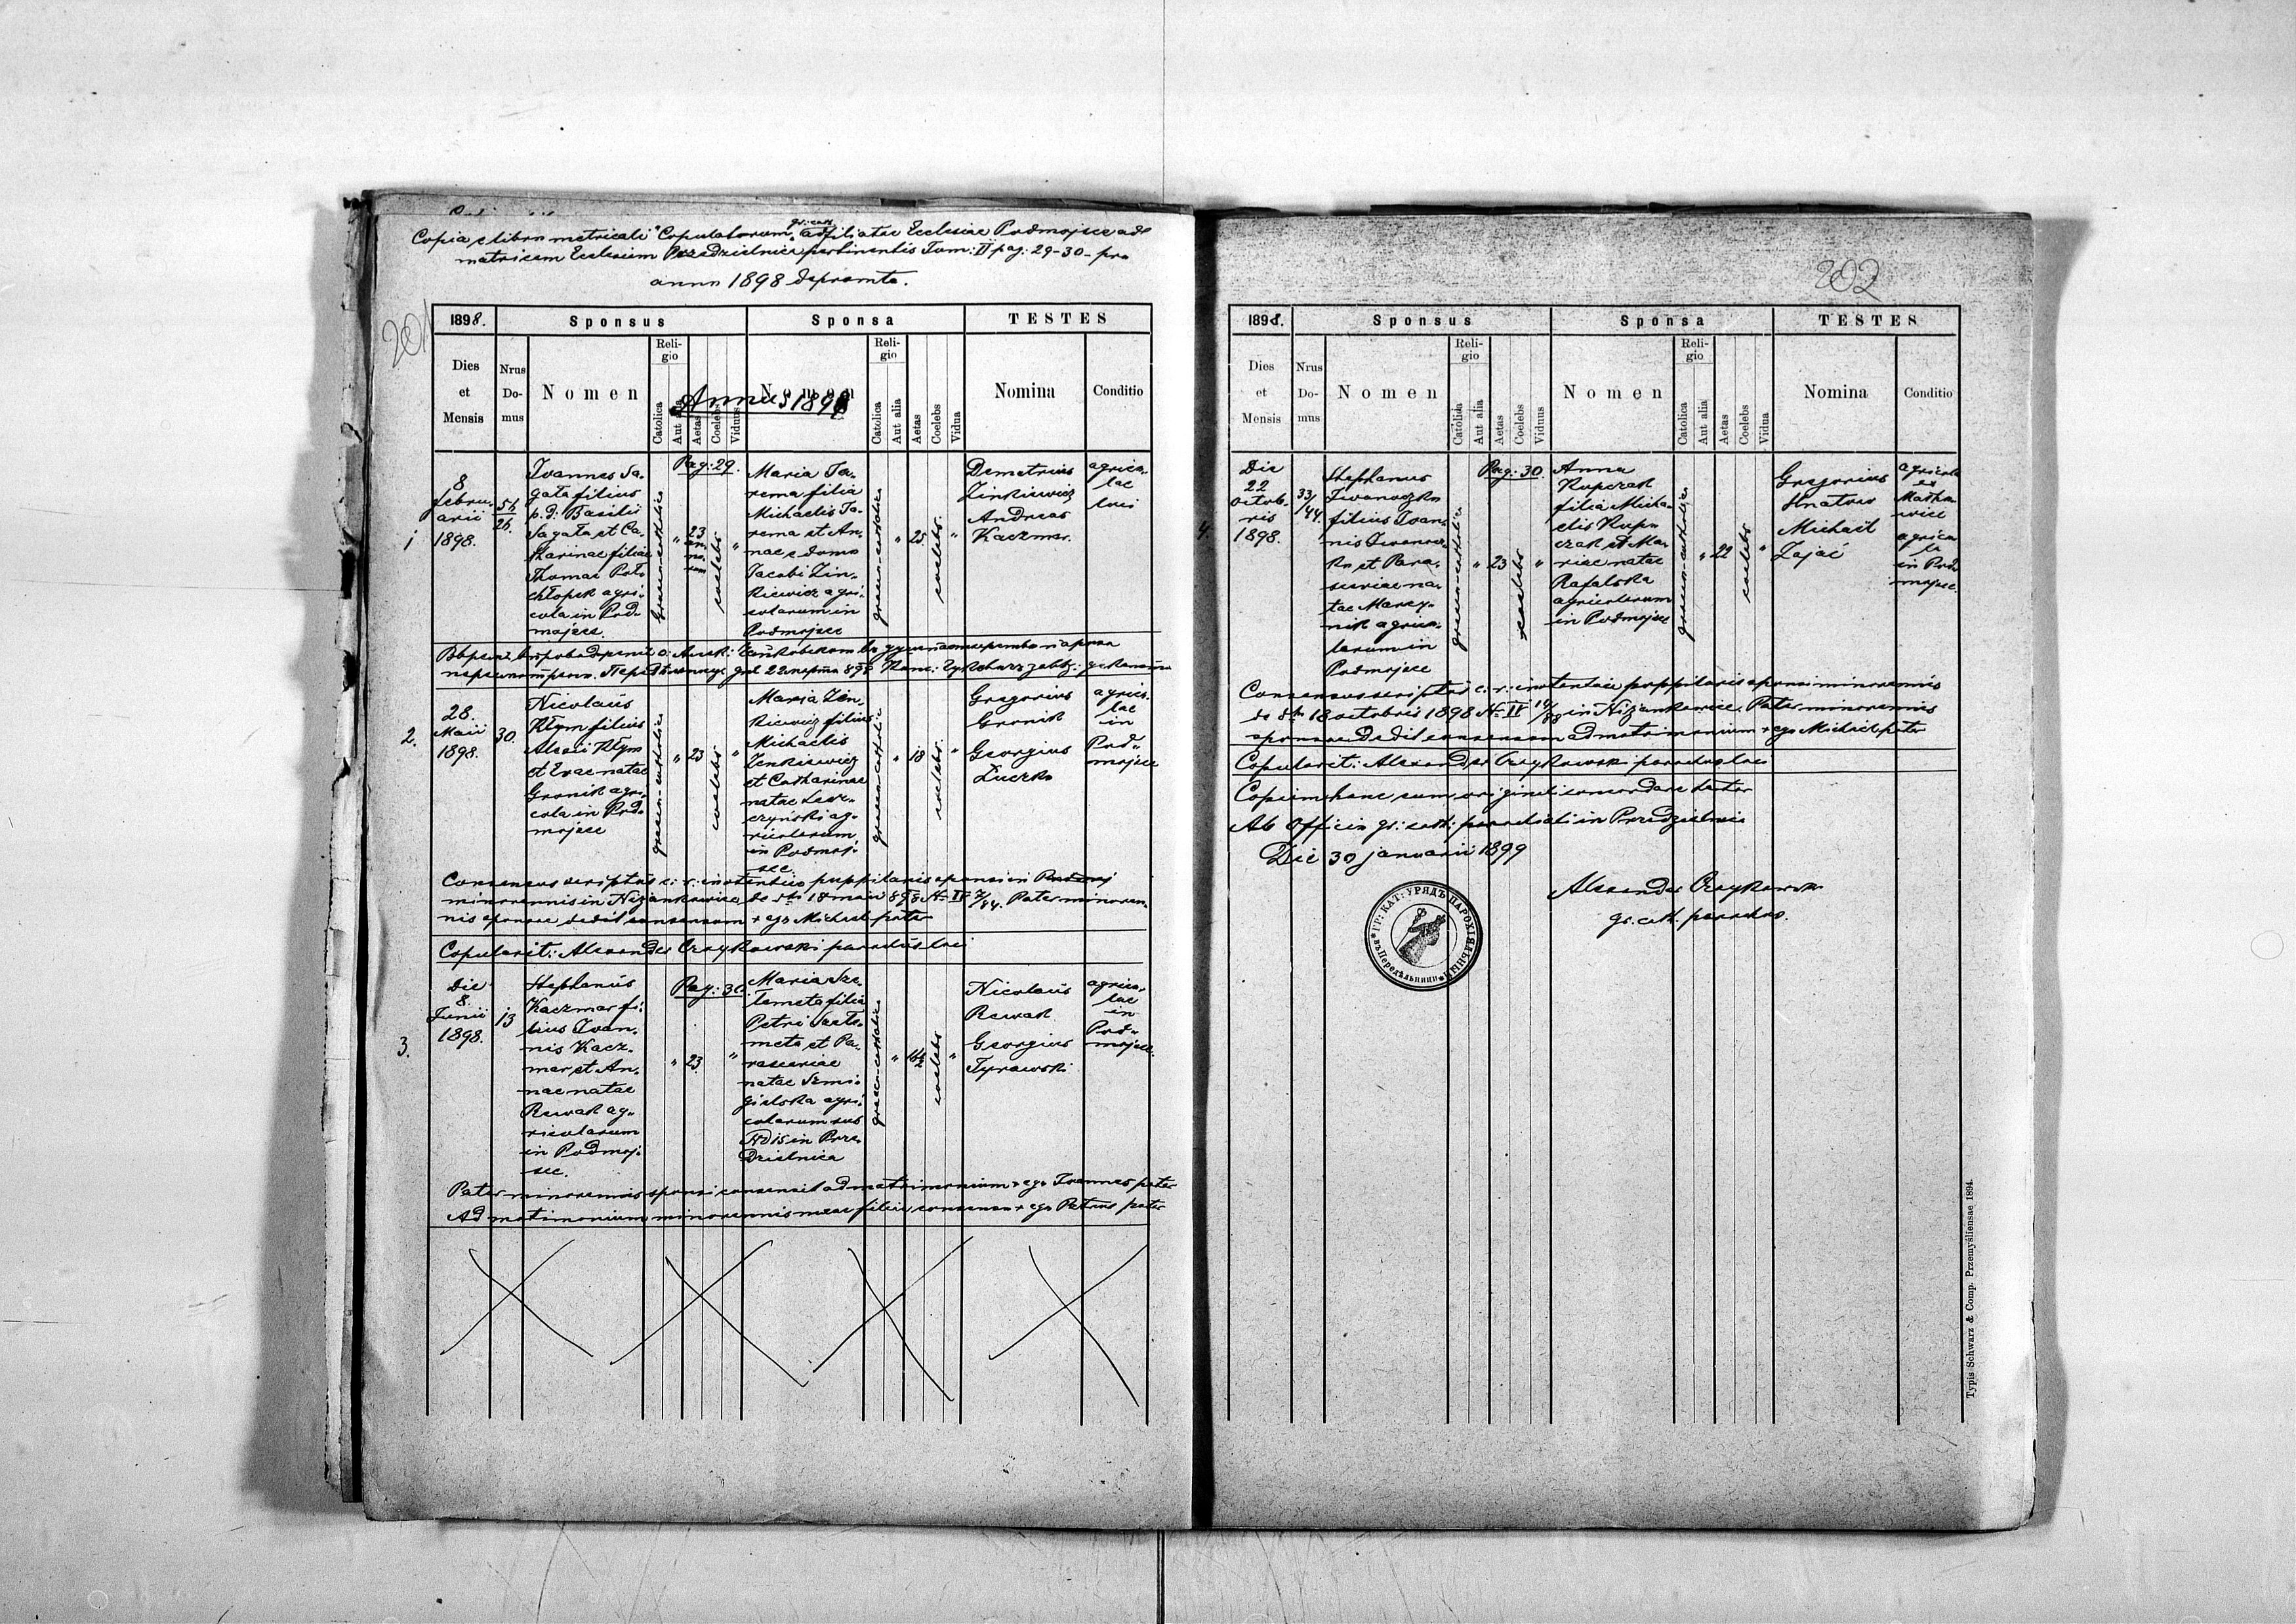 Copia e libro metricali Copulatorum gr: cath. adfiliatae Ecclesiae Podmojsce ad
matricem Ecclesiam Przedzielnica pertinentis Tom: II pag: 29-30 - pro
anno 1898 depromta.
201
1898.
Sponsus
Sponsa
TESTES
Dies
et
Mensis
Nrus
Do-
mus
Nomen
Reli-
gio
Catolica
Aut alia
Aetas
Coelebs
Viduus
Nomen
Reli-
gio
Catolica
Aut alia
Aetas
Coelebs
Vidua
Nomina
Conditio
Annus 1898
Pag: 29.
1
8
febru-
arii
1898.
Ioannes Sa-
gata filius
p. d. Basilii
Sagata et Ca-
tharinae filiae
Thomae
agri-
cola in Pod-
mojsce.
graeco-catholica
"
23
an-
no-
rum
coelebs
"
Maria Ja-
rema filia
Michaelis Ja-
rema et An-
nae e domo
Jacobi Zin-
kiewicz agri-
colarum in
Podmojsce
graeco-catholica
"
25
coelebs.
"
Demetrius
Zinkiewicz
Andreas
Kaczmar.
agrico-
lae
loci
2.
28.
Maii
1898.
30.
Nicolaus
Kłym filius
Alexii Kłym
et Evae natae
Gronik agri-
cola in Pod-
mojsce
graeco-catholica
"
23
coelebs
"
Maria Zin-
kiewicz filius
Michaelis
Zenkiewicz
et Catharinae
natae
ag-
ricolarum
in Podmoj-
sce.
graeco-catholica
"
18
coelebs.
"
Gregorius
Gronik
Georgius
Łuczko
agrico-
lae
in
Pod-
mojsce
Consensus scriptus c. r. instantiae puppilaris sponsi in
minorennis in Niżankowice de dto 18 maii 898 N IV 7/84. Pater minoren-
nis sponsae dedit consensum + ego Michael pater
Copulavit: Alexander Czaykowski parochus loci
3.
Die
8.
Junii
1898.
13
Stephanus
Kaczmar fi-
lius Ioan-
nis Kacz-
mar et An-
nae natae
Rewak ag-
ricolarum
in Podmoj-
sce.
Pag: 30.
"
23
"
Maria Sze-
lemeta filia
Petri
et Pa-
rasceviae
natae Szmi-
gielska agri-
colarum sub
N d 15 in Prze-
dzielnica
graeco-catholica
"
coelebs
"
Nicolaus
Rewak
Georgius
Tyrawski
agrico-
lae
in
Pod-
mojsce.
Pater minorennis sponsi consensit ad matrimonium + ego Ioannes pater
Ad matrimonium minorennis meae filiae consensum + ego Petrus pater
202
1898.
Sponsus
Sponsa
TESTES
Dies
et
Mensis
Nrus
Do-
mus
Nomen
Reli-
gio
Catolica
Aut alia
Aetas
Coelebs
Viduus
Nomen
Reli-
gio
Catolica
Aut alia
Aetas
Coelebs
Vidua
Nomina
Conditio
4.
Die
22
octob-
ris
1898.
33/44.
Stephanus
Iwanoczko
filius Ioan-
nis Iwanocz-
ko et Para-
sceviae na-
tae Marcy-
nik agrico-
larum in
Podmojsce
graeco-catholica
"
23
coelebs
"
Pag: 30.
Anna
Kupczak
filia Micha-
elis Kup-
czak et Ma-
riae natae
Rafalska
agricolarum
in Podmojsce
graeco-catholica
"
22
coelebs
"
Gregorius
Hnatow
Michail
Zająć
agricola
ex
agrico-
la
in Pod-
mojsce.
Consensus scriptus c. r. instantiae puppilaris sponsi minorennis
de dto 18 octobris 1898 N IV in Niżankowice. Pater minorennis
sponsae dedit consensum ad matrimonium + ego Michael pater
Copulavit: Alexander Czaykowski parochus loci
Copiam hanc cum originali concordare testor
Ab Officio gr: cath: parochiali in Przedzielnica
Die 30 januarii 1899
Alexander Czaykowski
gr. cath. parochus.
ГР: КАТ: УРЯДЪ ПАРОХІЯЛЬНЫЙ
въ Передѣльници
Typis Schwarz & Comp. Przemyśliensae 1894.